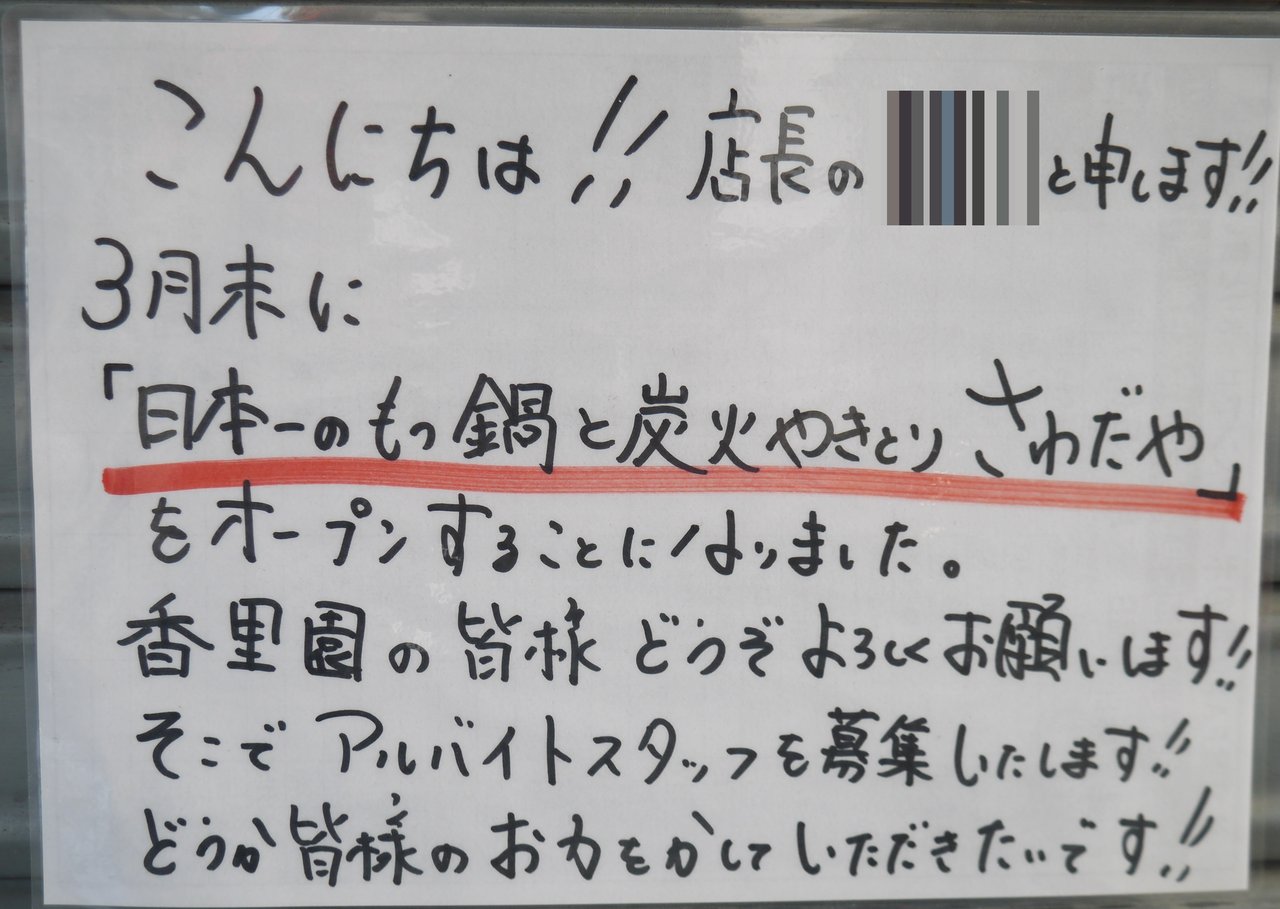 こんにちは!! 店長の と申します!!
3月末に
「日本一のもつ鍋と炭火やきとり さわだや」
をオープンすることになりました。
香里園の皆様 どうぞよろしくお願いします!!
そこで アルバイトスタッフを募集いたします!!
どうか皆様のお力をかしていただきたいです!!